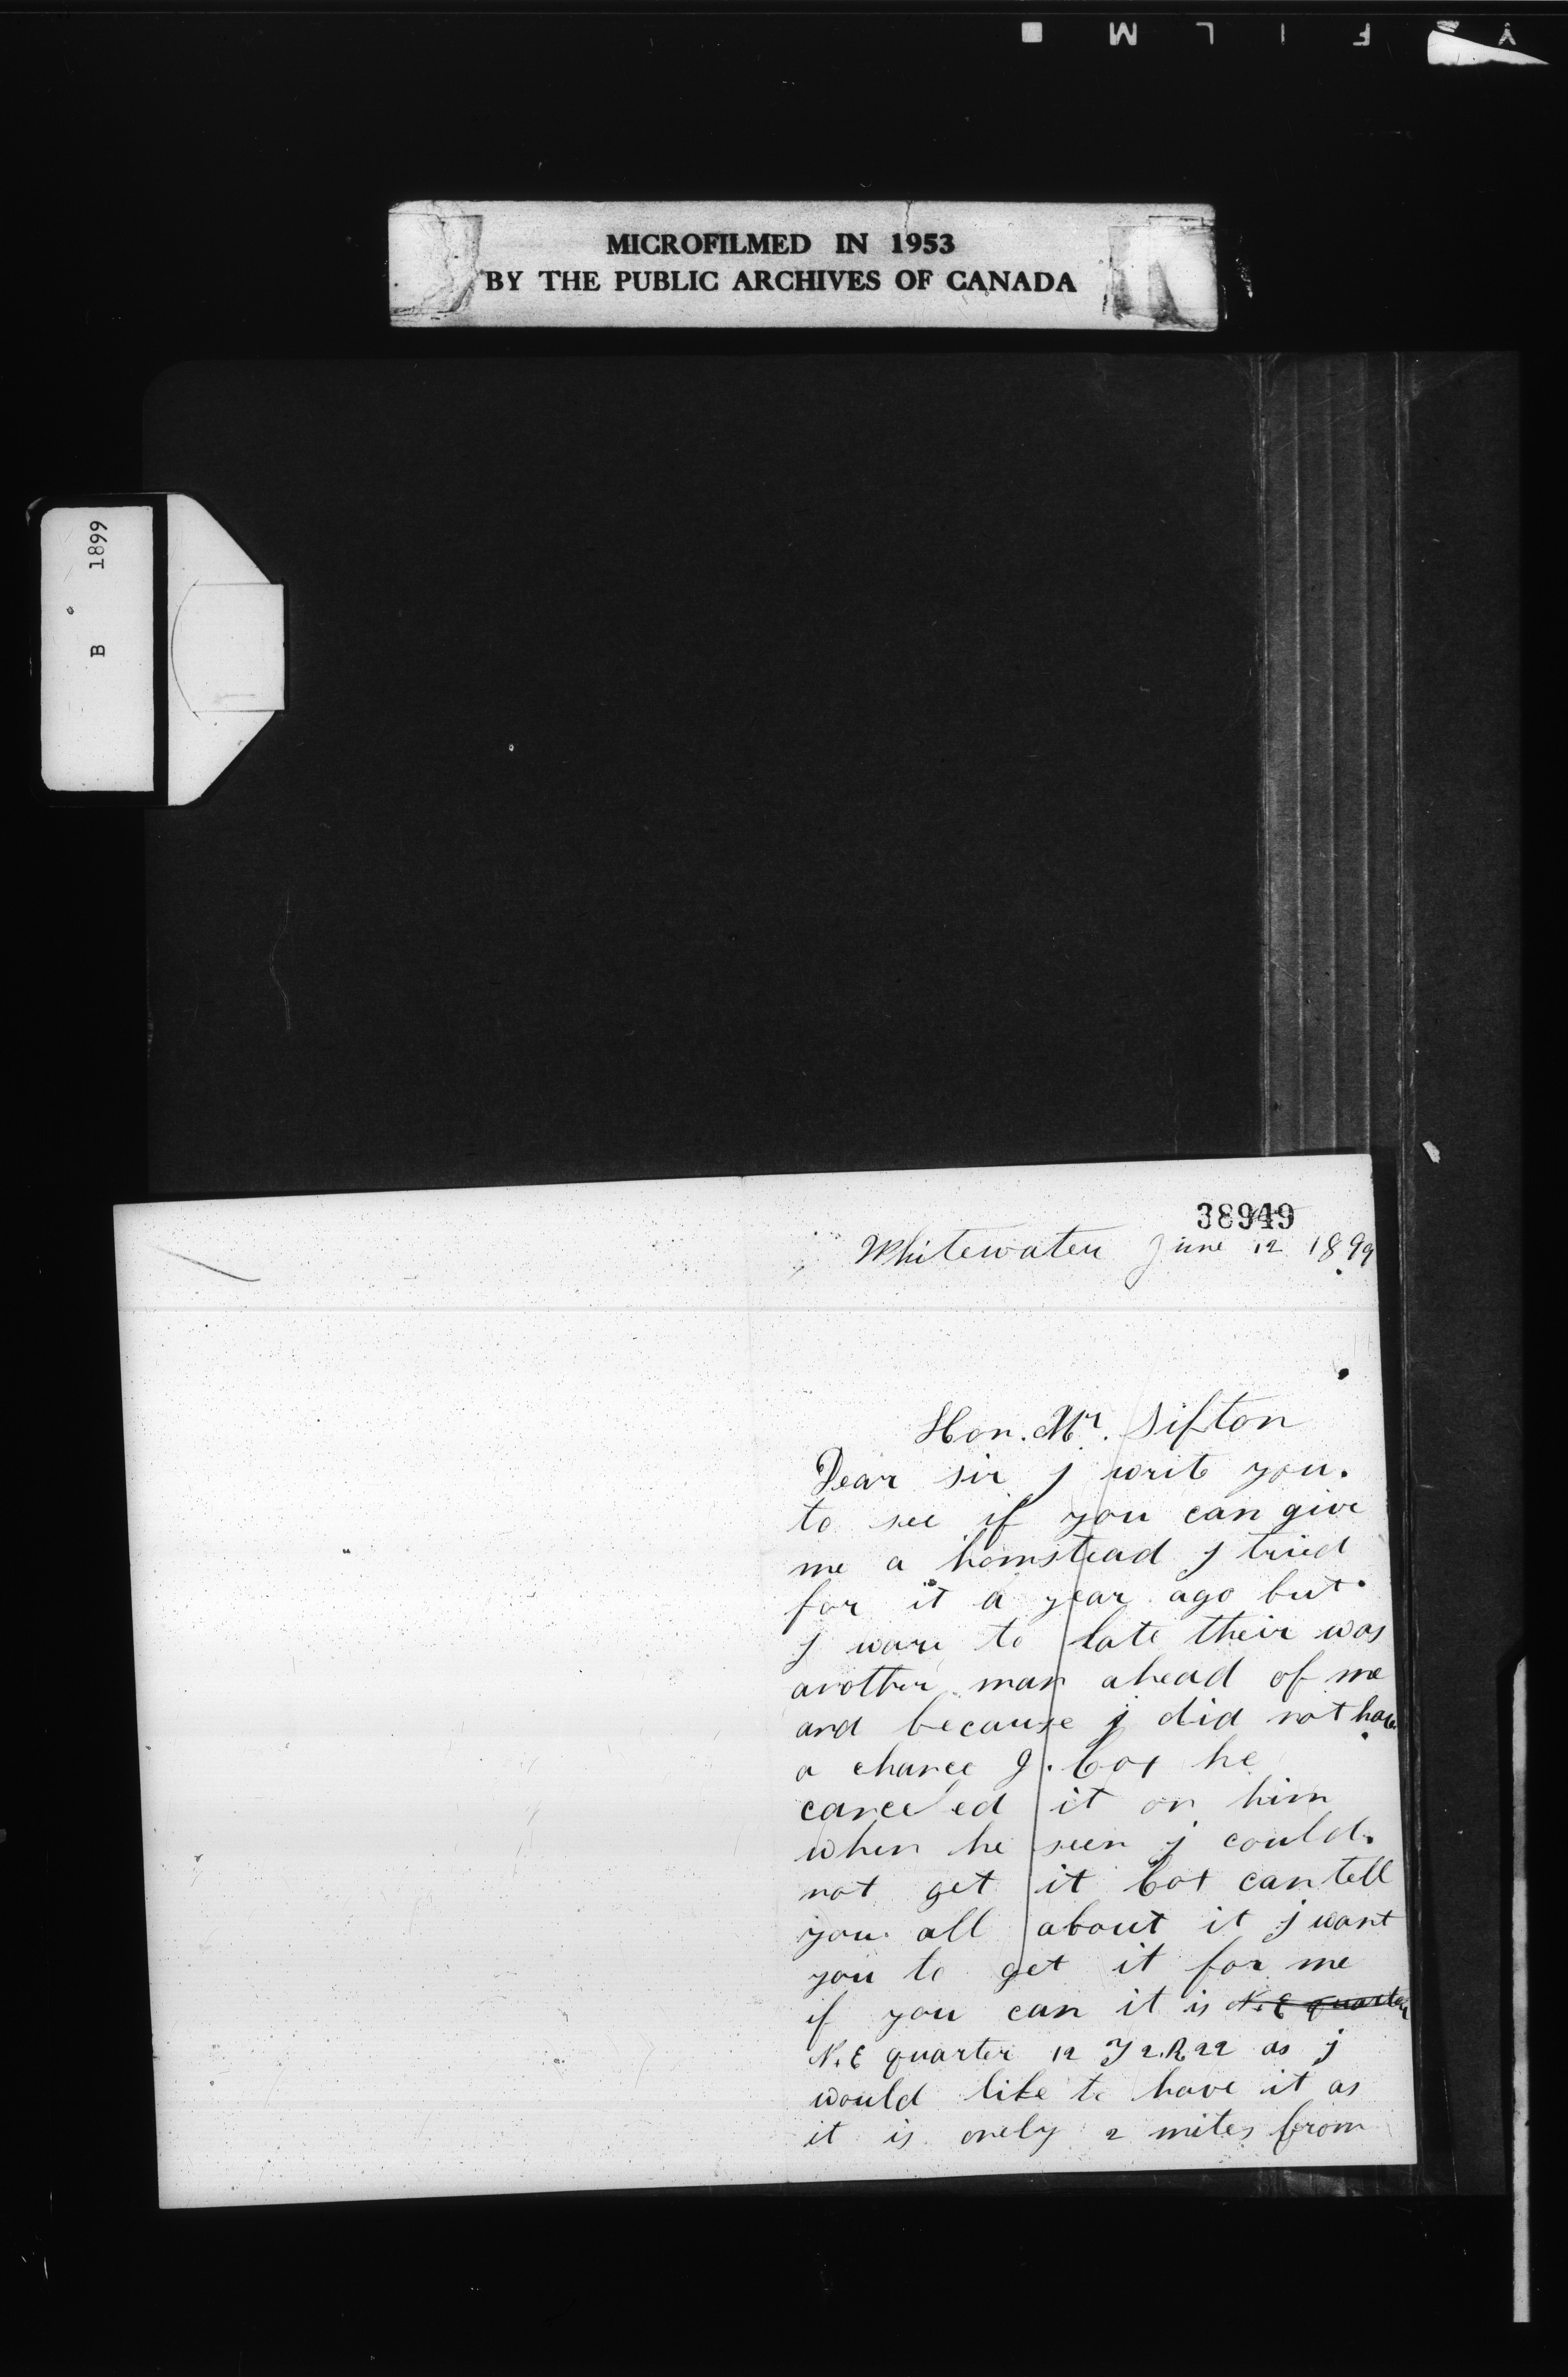 Y F I L M
MICROFILMED IN 1953
BY THE PUBLIC ARCHIVES OF CANADA
B 1899
38949
Whitewater June 12 1899
Hon. Mr. Sifton
Dear sir j writ you.
to see if you can give
me a homstead j tried
for it a year ago but
j ware to late their was
another man ahead of me
and because j did not have
a chance J. Cox he
canceled it on him
when he seen j could.
not get it Cox can tell
you all about it j want
you to get it for me
if you can it is N.E quarter
N.E quarter 12 T 2.R 22 as j
would like to have it as
it is onely 2 miles from